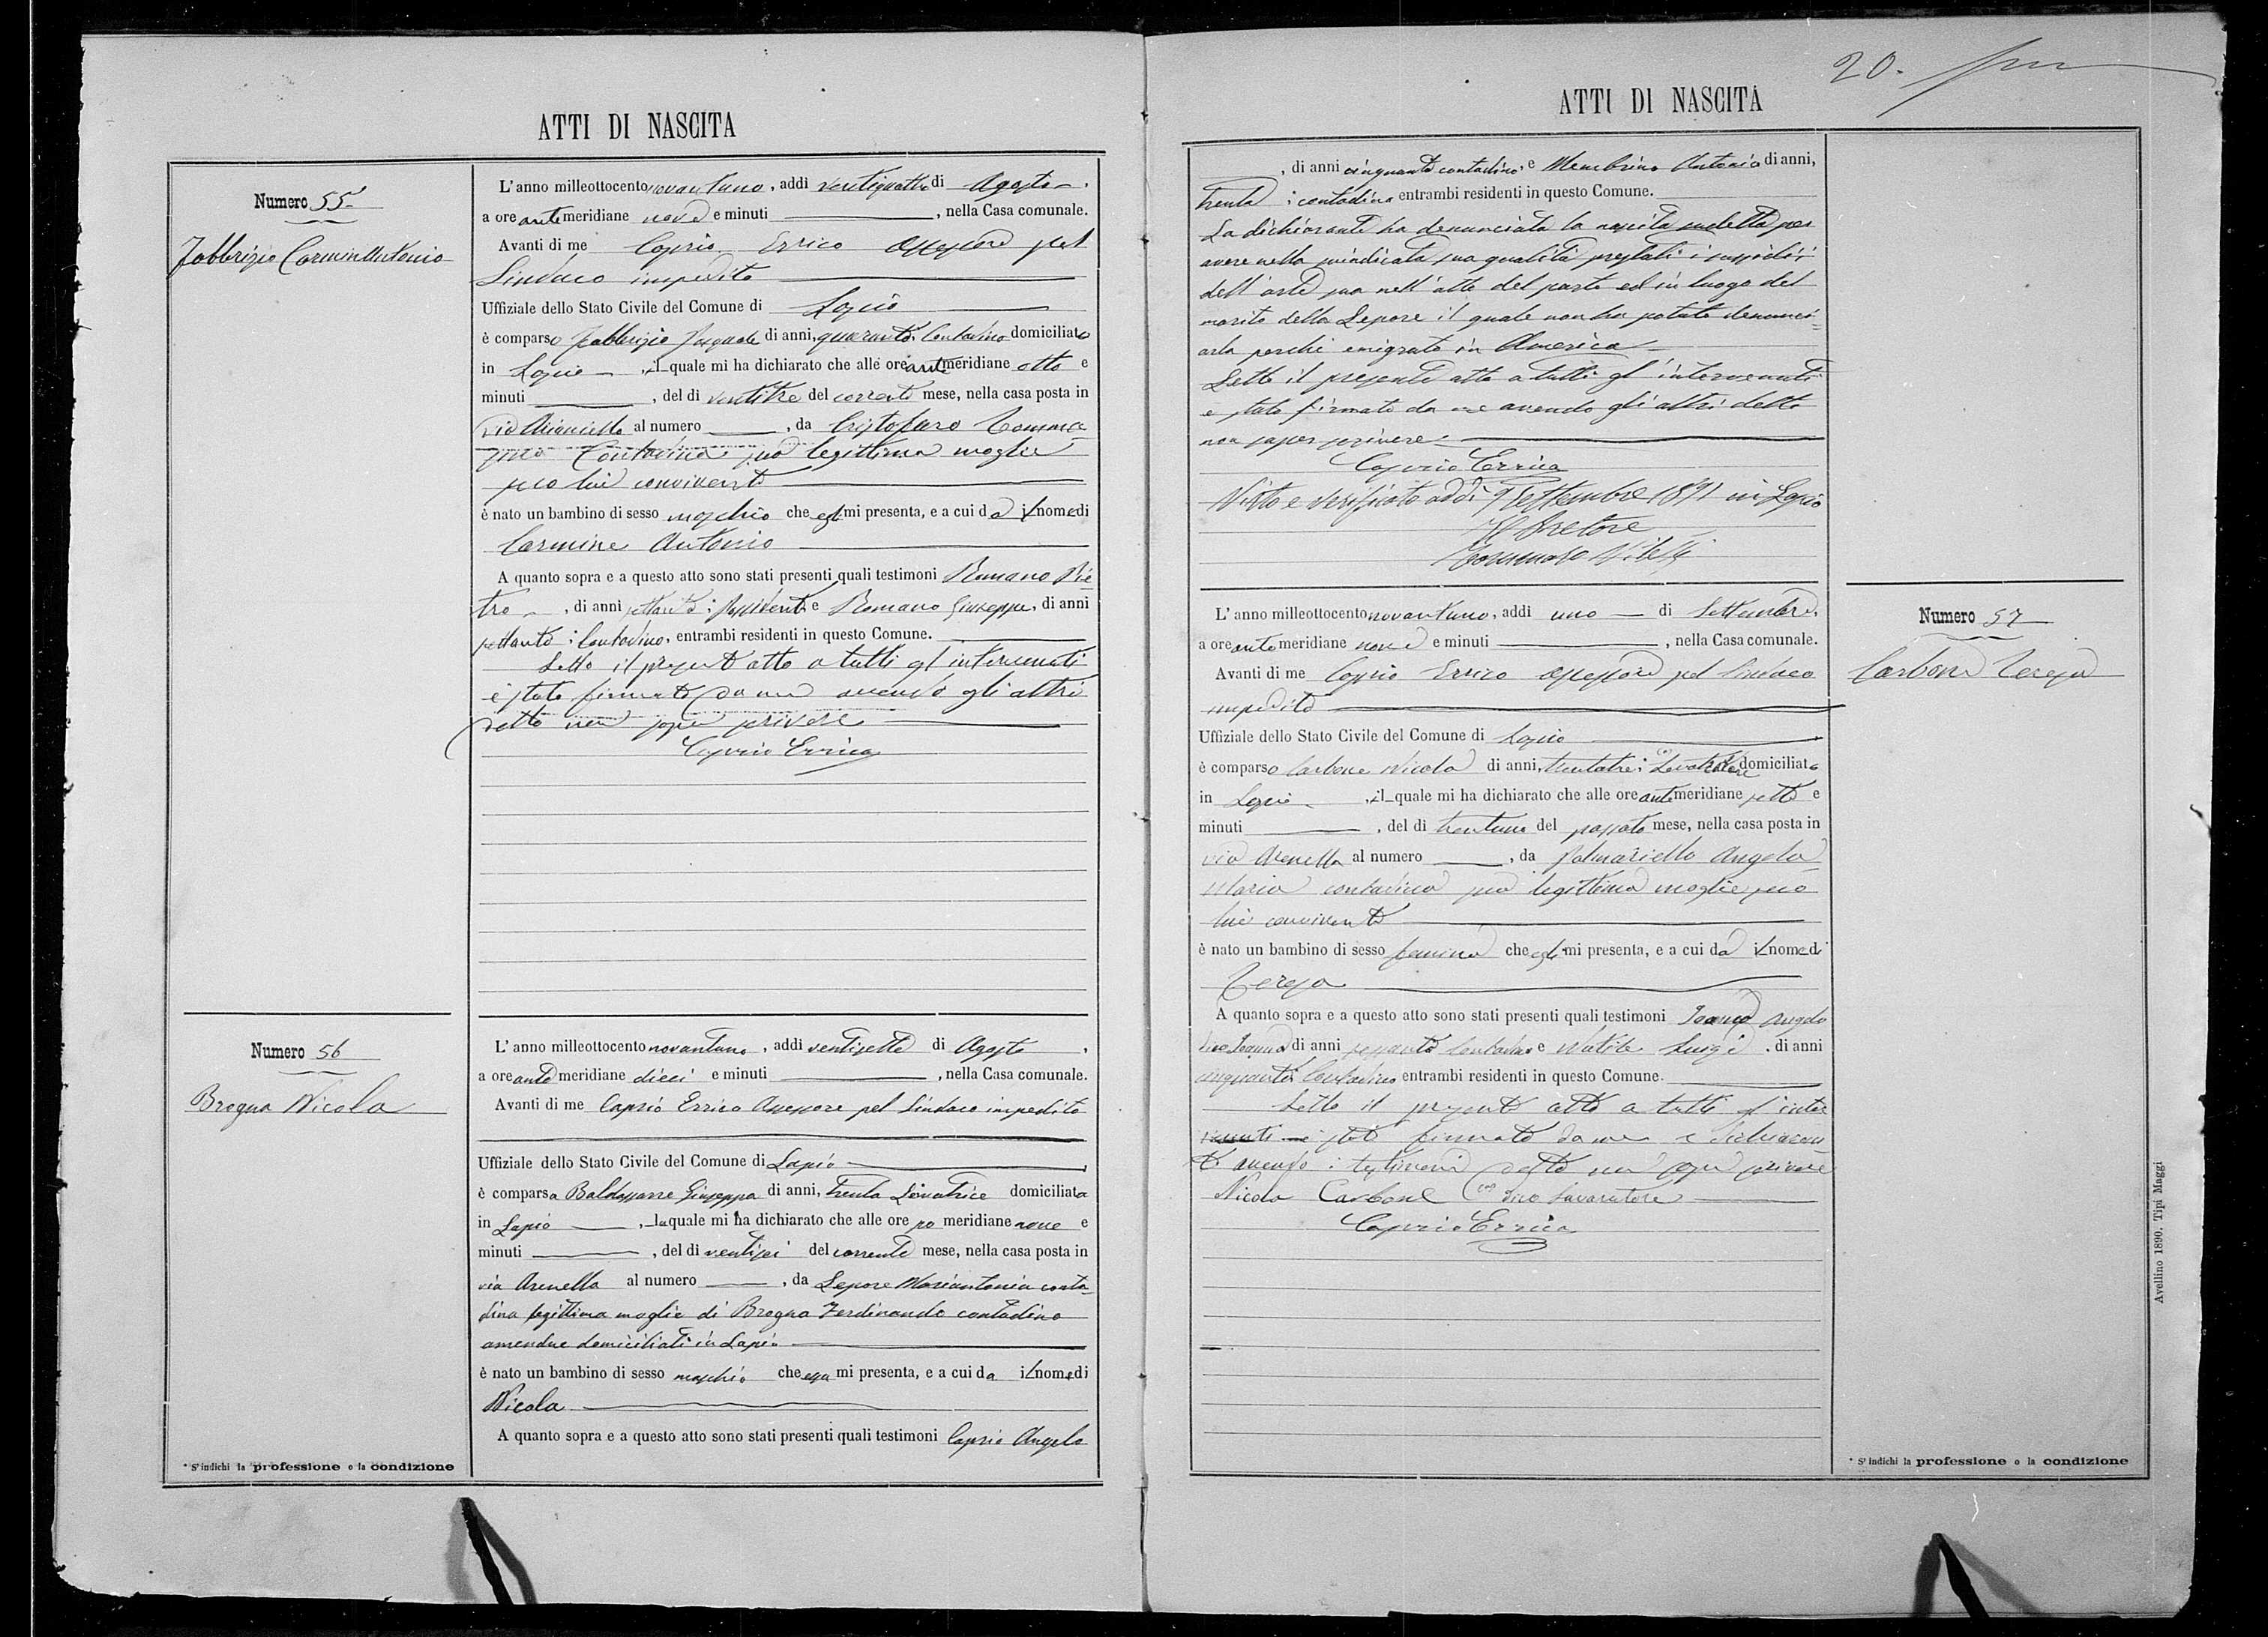 ATTI DI NASCITA
Numero 55
Fabbrizio Carmin'Antonio
L'anno milleottocento novantuno, addì ventiquattro di Agosto,
a ore antemeridiane nove e minuti , nella Casa comunale.
Avanti di me Caprio Errico Assessore pel
Sindaco impedito
Uffiziale dello Stato Civile del Comune di Lapio
è comparso Fabbrizio Pasquale di anni, quaranta, Contadino domiciliato
in Lapio , il quale mi ha dichiarato che alle ore antemeridiane otto e
minuti , del dì ventitre del corrente mese, nella casa posta in
via al numero , da Cristofaro Tomma
sina Contadina sua legittima moglie
seco lui convivente
è nato un bambino di sesso maschio che egli mi presenta, e a cui da il nome di
Carmine Antonio
A quanto sopra e a questo atto sono stati presenti quali testimoni Romano Pie
tro , di anni settanta, Possidente e Romano Giuseppe, di anni
settanta, Contadino, entrambi residenti in questo Comune.
Letto il presente atto a tutti gl'intervenuti
è stato firmato da me avendo gli altri
detto non saper scrivere
Caprio Errico
Numero 56
Brogna Nicola
L'anno milleottocento novantuno, addì ventisette di Agosto,
a ore antemeridiane dieci e minuti , nella Casa comunale.
Avanti di me Caprio Errico Assessore pel Sindaco impedito
Uffiziale dello Stato Civile del Comune di Lapio
è comparsa Baldassarre Giuseppa di anni, trenta Levatrice domiciliata
in Lapio , la quale mi ha dichiarato che alle ore po meridiane nove e
minuti , del dì ventisei del corrente mese, nella casa posta in
via Arenella al numero , da Lepore Mariantonia conta-
dina legittima moglie di Brogna Ferdinando contadino
amendue domiciliati in Lapio
è nato un bambino di sesso maschio che essa mi presenta, e a cui da il nome di
Nicola
A quanto sopra e a questo atto sono stati presenti quali testimoni Caprio Angelo
* S'indichi la professione o la condizione
20.
ATTI DI NASCITA
, di anni cinquanta contadino, e Membrino Antonio di anni,
trenta contadino entrambi residenti in questo Comune.
La dichiarante ha denunciata la nascita sudetta per
avere nella suindicata sua qualità prestati i sussidii
dell'arte sua nell'atto del parto ed in luogo del
marito della Lepore il quale non ha potuto denunci-
arla perchè emigrato in America
Letto il presente atto a tutti gl'intervenuti
è stato firmato da me avendo gli altri detto
non saper scrivere
Caprio Errico
Visto e verificato addì 9 Settembre 1891 in Lapio
Il Pretore
Tommaso
Numero 57
Carbone Teresa
L'anno milleottocento novantuno, addì uno di Settembre,
a ore antemeridiane nove e minuti , nella Casa comunale.
Avanti di me Caprio Errico Assessore pel Sindaco
impedito
Uffiziale dello Stato Civile del Comune di Lapio
è comparso Carbone Nicola di anni, trentatre, domiciliato
in Lapio , il quale mi ha dichiarato che alle ore antemeridiane sette e
minuti , del dì trentuno del passato mese, nella casa posta in
via Arenella al numero , da Palmariello Angela
Maria contadina sua legittima moglie seco
lui convivente
è nato un bambino di sesso femina che egli mi presenta, e a cui da il nome di
Teresa
A quanto sopra e a questo atto sono stati presenti quali testimoni Angelo
dico di anni sessanta Contadino e Natile Luigi , di anni
cinquanta Contadino entrambi residenti in questo Comune.
Letto il presente atto a tutti gl'inter
venuti è stato firmato da me e dichiaran
te avendo i testimoni detto non saper scrivere
Nicola Carbone dico Lavoratore
Caprio Errico
* S'indichi la professione o la condizione
Avellino 1890. Tipi Maggi